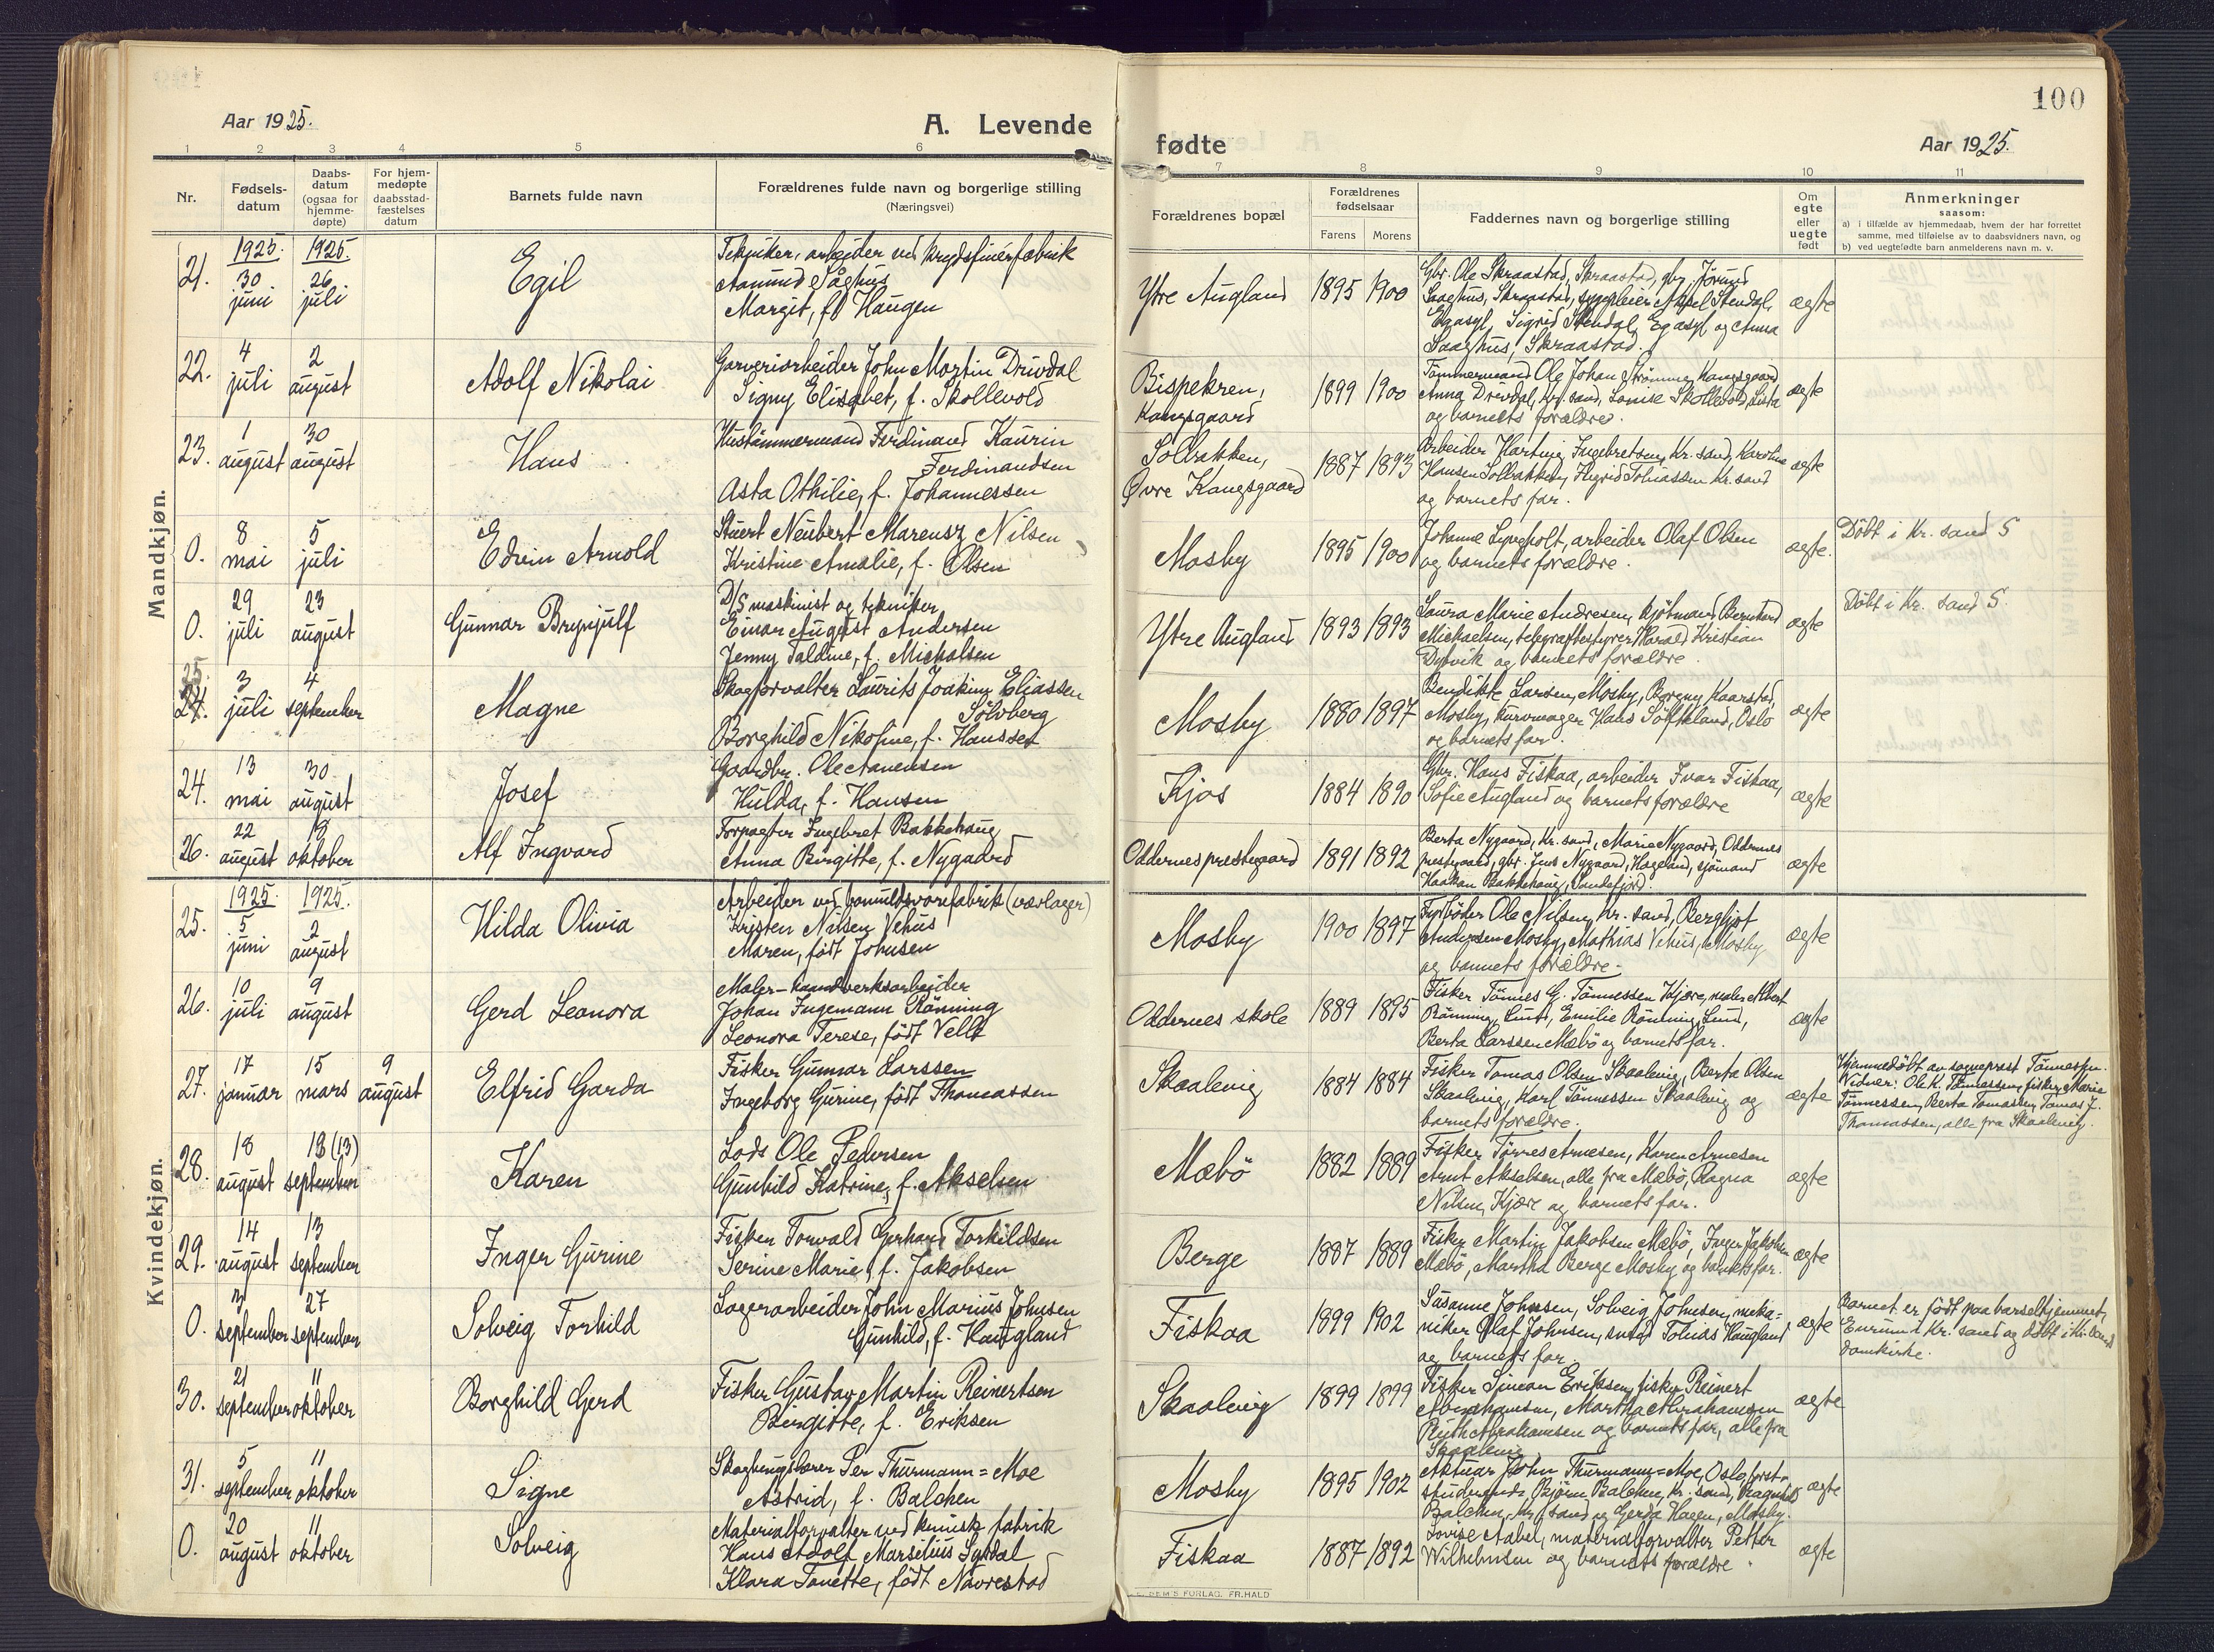 100
Aar 1925.
A. Levende
fødte
Aar 1925.
1 2 3 4 5 6 7 8 9 10 11
Nr.
Fødsels-
datum
Daabs-
datum
(ogsaa for
hjemme-
døpte)
For hjem-
medøpte
daabsstad-
fæstelses
datum
Barnets fulde navn
Forældrenes fulde navn og borgerlige stilling
(Næringsvei)
Forældrenes bopæl
Forældrenes
fødselsaar
Farens Morens
Faddernes navn og borgerlige stilling
Om
egte
eller
uegte
født
Anmerkninger
saasom:
a) i tilfælde av hjemmedaab, hvem der har forrettet
samme, med tilføielse av to daabsvidners navn, og
b) ved uegtefødte barn anmelderens navn m. v.
Mandkjøn.
21.
1925. 1925.
30 26
juni juli
Egil
Tekniker, arbeider ved krydsfinérfabrik
Aamund Såghus
Margit, fd Haugen
Ytre Augland
1895 1900
Gbr. Ole Skraastad, Skraastad, gbr. Jörund
Saaghus, Skraastad, sygepleier Aksel Stendal,
Egasyl, Sigrid Stendal, Egasyl og Anna
Saaghus, Skraastad.
ægte
22.
4 2
juli august
Adolf Nikolai
Garveriarbeider John Martin Drivdal
Signy Elisabet, f. Skollevold
Bispekren,
Kongsgaard
1899 1900
Tömmermand Ole Johan Strömme, Kongsgaard
Anna Drivdal, Kr.sand, Louise Skollevold, Lista
og barnets forældre.
ægte
23.
1 30
august august
Hans
Hustömmermand Ferdinand Kaurin
Ferdinandsen
Asta Othilie, f. Johannessen
Solbakken,
Øvre Kongsgaard
1887 1893
Arbeider Hartvig Ingebretsen, Kr.sand, Karoline
Hansen Solbakken, Ingrid Tobiassen Kr.sand
og barnets far.
ægte
0.
8 5
mai juli
Edvin Arnold
Stuert Neubert Marensz Nilsen
Kristine Amalie, f. Olsen
Mosby
1895 1900
Johanne Lyngholt, arbeider Olaf Olsen
og barnets forældre.
ægte.
Döbt i Kr. sand S
0.
29 23
juli august
Gunnar Brynjulf
D/S maskinist og tekniker
Einar August Andersen
Jenny Taldine, f. Michalsen
Ytre Augland
1893 1893
Laura Marie Andresen, kjöbmand Bernhard
Michaelsen, telegrafbestyrer Harald Kristian
Dybvik og barnets forældre.
ægte
Döbt i Kr. sand S.
25.
24.
3 4
juli september
Magne
Skogforvalter Laurits Joakim Eliassen
Sölvberg
Borghild Nikoline, f. Hansset
Mosby
1880 1897
Bendikte Larsen, Mosby, Borgny Kaarstad,
Mosby, kurvmager Hans Söfteland, Oslo
og barnets far.
ægte
24.
13 30
mai august
Josef
Gaardbr. Ole Aanensen
Hulda, f. Hansen
Kjos
1884 1890
Gbr. Hans Fiskaa, arbeider Ivar Fiskaa,
Sofie Augland og barnets forældre
ægte
26.
22
august oktober
Alf Ingvard
Forpagter Ingebret Bakkehaug
Anna Birgitte, f. Nygaard
Oddernes prestegaard
1891 1892
Berta Nygaard, Kr. sand, Marie Nygaard, Oddernes
prestegaard, gbr. Jens Nygaard, Hægeland, sjömand
Haakon Bakkehaug, Sandefjord.
ægte
Kvindekjøn.
25.
1925. 1925.
5 2
juni august
Hilda Olivia
Arbeider ved bomuldsvarefabrik (værlager)
Kristen Nilsen Vehus
Maren, født Johnsen
Mosby
1900 1897
Fyrböder Ole Nilsen, Kr. sand, Bergljot
Andersen Mosby, Mathias Vehus, Mosby
og barnets forældre.
ægte
26.
10 9
juli august
Gerd Leonora
Maler- haandverksarbeider
Johan Ingemann Rönning
Leonora Terese, född Velle
Oddernes skole
1889 1895
Fisker Tönnes G. Tönnessen Kjære, maler Albert
Rönning, Lund, Emilie Rönning, Lund,
Berta Larssen Mæbö og barnets far.
ægte
27.
17 15 9
januar mars august
Elfrid Garda
Fisker Gunnar Larssen
Ingeborg Gurine, född Thomassen
Skaalevig
1884 1884
Fisker Tomas Olsen Skaalevig, Berta Olsen
Skaalevig, Karl Tönnessen Skaalevig og
barnets forældre.
ægte
Hjemmedöbt av sogneprest Tönnessen.
Vidner: Ole K. Tönnessen, fisker, Marie
Tönnessen, Berta Tomassen, Tomas J.
Thomassen, alle fra Skaalevig.
28.
18 13 (13)
august september
Karen
Lods Ole Pedersen
Gunhild Katrine, f. Akselsen
Mæbö
1882 1889
Fisker Tørres Arnesen, Karen Arnesen
Arnt Akselsen, alle fra Mæbö, Ragna
Nilsen, Kjære og barnets far.
ægte
29.
14 13
august september
Inger Gurine
Fisker Torvald Gerhard Torkildsen
Serine Marie, f. Jakobsen
Berge
1887 1889
Fisker Martin Jakobsen Mæbö, Inger Jakobsen
Mæbö, Martha Berge Mosby og barnets far.
ægte
0.
3 27
september september
Solveig Torhild
Lagerarbeider John Marius Johnsen
Gunhild, f. Haugland
Fiskaa
1899 1902
Susanne Johnsen, Solveig Johnsen, meka-
niker Olaf Johnsen, Tobias Haugland
og barnets far.
ægte
Barnet er født paa barselhjemmet,
i Kr. sand og döbt i Kr.sand
domkirke.
30.
21 11
september oktober
Borghild Gerd
Fisker Gustav Martin Reinertsen
Birgitte, f. Eriksen
Skaalevig
1899 1899
Fisker Simon Eriksen, fisker Reinert
Abrahamsen, Martha Abrahamsen
Ruth Abrahamsen og barnets far, alle fra
Skaalevig
ægte
31.
5 11
september oktober
Signe
Per Thurmann=Moe
Astrid, f. Balchen
Mosby
1895 1902
Aktuar John Thurmann=Moe, Oslo, forst-
studerende Björn Balchen, Kr. sand, Ragnhild
Balchen, Kr.sand og Gerda Hagen, Mosby.
ægte
0.
20 11
august oktober
Solveig
Materialforvalter ved kemisk fabrik
Hans Adolf Marselius Syrdal
Klara Tonette, född Navrestad
Fiskaa
1887 1892
Lovise Aabel, materialforvalter Petter
Wilhelmsen og barnets forældre.
ægte
FORLAG. FR. HALD